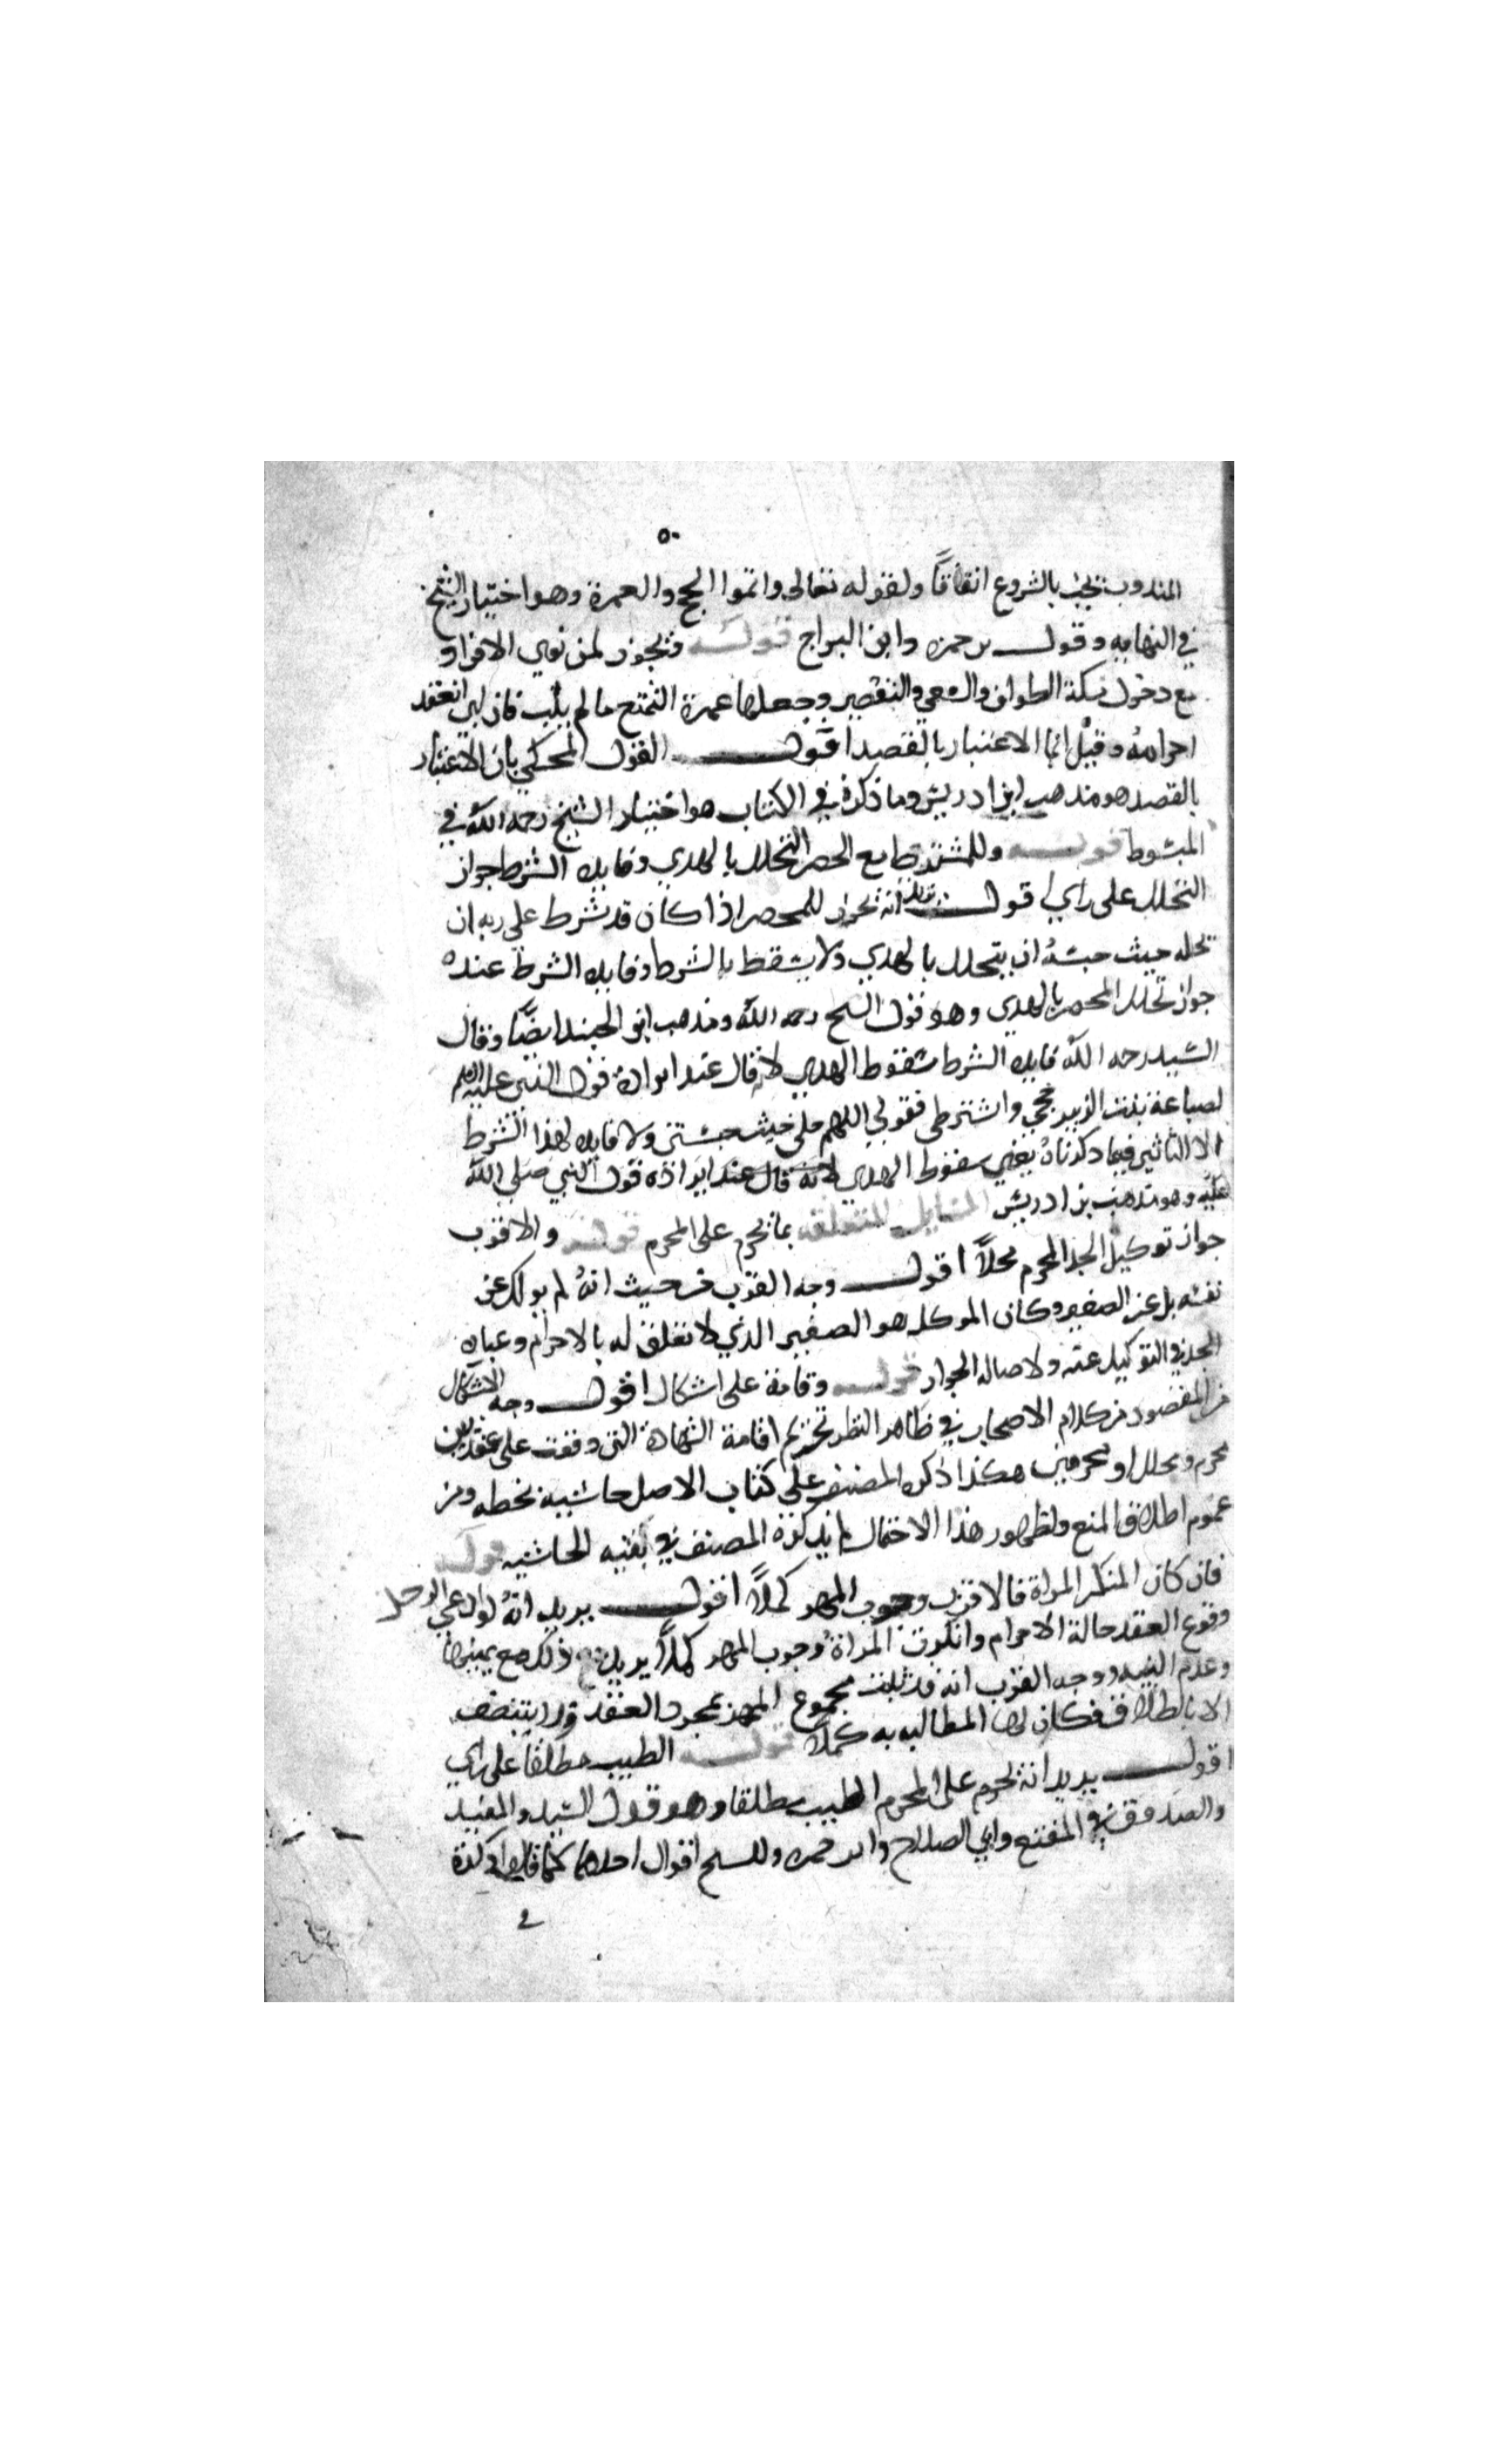 ٥٠
المندوب يجب بالشروع اتفاقاً ولقوله تعالى واتموا الحج والعمرة وهو اختيار الشيخ
في النهايه وقول بن حمزه وابن البراج قوله ويجوز لمن نوى الافراد
مع دخول مكة الطواف والسعي والتقصير وجعلها عمرة التمتع ما لم يلب فان لبى انعقد
احرامه وقيل انما الاعتبار بالقصد اقول القول المحكي بان الاعتبار
بالقصد هو مذهب ابن ادريس وما ذكره في الكتاب هو اختيار الشيخ رحمه الله في
المبسوط قوله وللمشترط مع الحصر التحلل بالهدي وفايده الشرط جواز
التحلل على راي اقول يريد انه يجوز للمحصر اذا كان قد شرط على ربه ان
يحله حيث حبسه ان يتحلل بالهدي ولا يسقط بالشرط وفايده الشرط عنده
جواز تحلل المحصر بالهدي وهو قول الشيخ رحمه الله ومذهب ابن الجنيد ايضًا وقال
السيد رحمه الله فايده الشرط سقوط الهدي لانه قال عند ايراده قول النبي عليه السلم
لضباعة بنت الزبير حجي واشترطي فقولي اللهم محلي حيث حبستني ولا فايده لهذا الشرط
الا التاثير فيما ذكرناه يعني سقوط الهدي لانه قال عند ايراده قول النبي صلى الله
عليه وهو مذهب بن ادريس المسايل المتعلقه بما يحرم على المحرم قوله والاقرب
جواز توكيل الجد المحرم محلاً اقول وجه القرب من حيث انه لم يوكل عن
نفسه بل عن الصغير وكان الموكل هو الصغير الذي لا تعلق له بالاحرام وعباره
الجد في التوكيل عنه ولاصاله الجواز قوله وقامة على اشكال اقول وجه الاشكال
من المقصود من كلام الاصحاب في ظاهر النظر تحريم اقامة الشهادة التي وقعت على عقد بين
محرم ومحلل او محرمين هكذا ذكره المصنف على كتاب الاصل حاشيه بخطه ومن
عموم اطلاق المنع ولظهور هذا الاحتمال لم يذكره المصنف في بقيه الحاشيه قوله
فان كان المنكر المراة فالاقرب وجوب المهر كملاً اقول يريد انه لو ادعى الرجل
وقوع العقد حالة الاحرام وانكرت المراة وجوب المهر كملاً يريد ذلك مع يمينها
وعدم البينه ووجه القرب انه قد ثبت مجموع المهر بمجرد العقد ولا يتنصف
الا بالطلاق فكان لها المطالبه به كملاً قوله الطيب مطلقاً على راي
اقول يريد انه يحرم على المحرم الطيب مطلقا وهو قول السيد والمفيد
والصدوق في المقنع وابي الصلاح وابن حمزه وللشيخ اقوال احدها كما قلناه ذكره
في